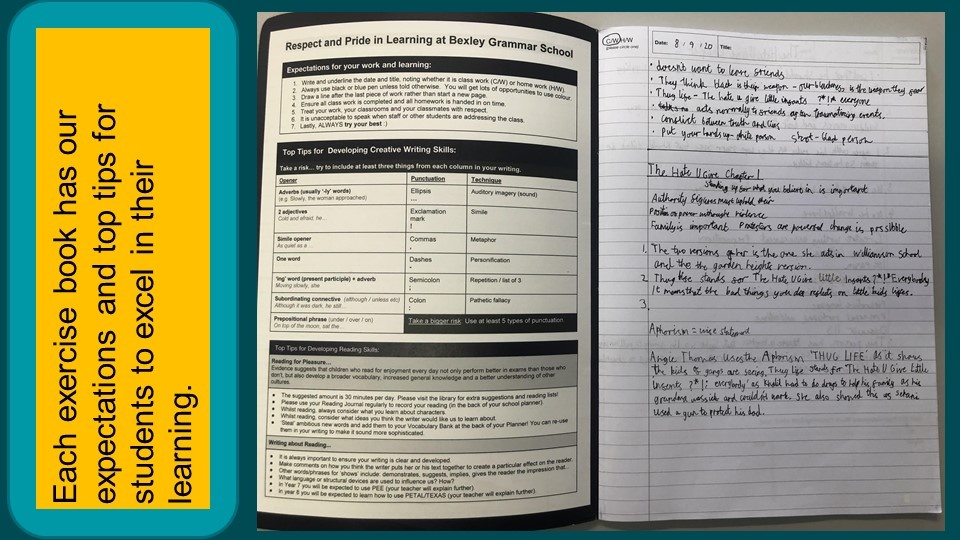 Each exercise book has our
expectations and top tips for
students to excel in their
learning.
Respect and Pride in Learning at Bexley Grammar School
Expectations for your work and learning:
1. Write and underline the date and title, noting whether it is class work (C/W) or home work (H/W).
2. Always use black or blue pen unless told otherwise. You will get lots of opportunities to use colour.
3. Draw a line after the last piece of work rather than start a new page.
4. Ensure all class work is completed and all homework is handed in on time.
5. Treat your work, your classrooms and your classmates with respect.
6. It is unacceptable to speak when staff or other students are addressing the class.
7. Lastly, ALWAYS try your best :)
Top Tips for Developing Creative Writing Skills:
Take a risk... try to include at least three things from each column in your writing.
Opener Punctuation Technique
Adverbs (usually '-ly' words) Ellipsis Auditory imagery (sound)
(e.g. Slowly, the woman approached) ...
2 adjectives Exclamation Simile
Cold and afraid, he... mark
!
Simile opener Commas Metaphor
As quiet as a ... ,
One word Dashes Personification
-
'ing' word (present participle) + adverb Semicolon Repetition / list of 3
Moving slowly, she ;
Subordinating connective (although / unless etc) Colon Pathetic fallacy
Although it was dark, he still... :
Prepositional phrase (under / over / on) Take a bigger risk: Use at least 5 types of punctuation
On top of the moon, sat the...
Top Tips for Developing Reading Skills:
Reading for Pleasure...
Evidence suggests that children who read for enjoyment every day not only perform better in exams than those who
don't, but also develop a broader vocabulary, increased general knowledge and a better understanding of other
cultures.
• The suggested amount is 30 minutes per day. Please visit the library for extra suggestions and reading lists!
• Please use your Reading Journal regularly to record your reading (in the back of your school planner).
• Whilst reading, always consider what you learn about characters.
• Whilst reading, consider what ideas you think the writer would like us to learn about.
• 'Steal' ambitious new words and add them to your Vocabulary Bank at the back of your Planner! You can re-use
them in your writing to make it sound more sophisticated.
Writing about Reading...
• It is always important to ensure your writing is clear and developed.
• Make comments on how you think the writer puts her or his text together to create a particular effect on the reader.
• Other words/phrases for 'shows' include: demonstrates, suggests, implies, gives the reader the impression that...
• What language or structural devices are used to influence us? How?
• In Year 7 you will be expected to use PEE (your teacher will explain further).
• In year 8 you will be expected to learn how to use PETAL/TEXAS (your teacher will explain further).
C/W H/W
Date: 8 / 9 / 20 Title:
• doesn't want to leave friends
• They think that is their weapon - our blackness is the weapon they fear
• Thug life - The hate u give little infants f*!*s everyone
• acts normally to friends after traumatising events.
• Conflict between truth and lies
• put your hands up - white person shoot - black person
The Hate U Give Chapter 1
Standing up for what you believe in is important
Authority figures must uphold their
Position or power without violence
Family is important Protestors are powerful change is possible
1. The two versions of her is the one she acts in Williamson School
and the the garden heights version.
2. Thug life stands for The Hate U Give little Infants f*!*s Everybody
It means that the bad things you do reflects on little kids lives.
3.
Aphorism = wise statement
Angie Thomas uses the Aphorism 'THUG LIFE' as it shows
the kids of gangs are seeing. Thug life stands for 'The Hate U Give Little
Infants f*!*s everybody' as Khalil had to do drugs to help his family as his
grandma was sick and couldn't work. She also showed this as Setani
used a gun to protect his dad.